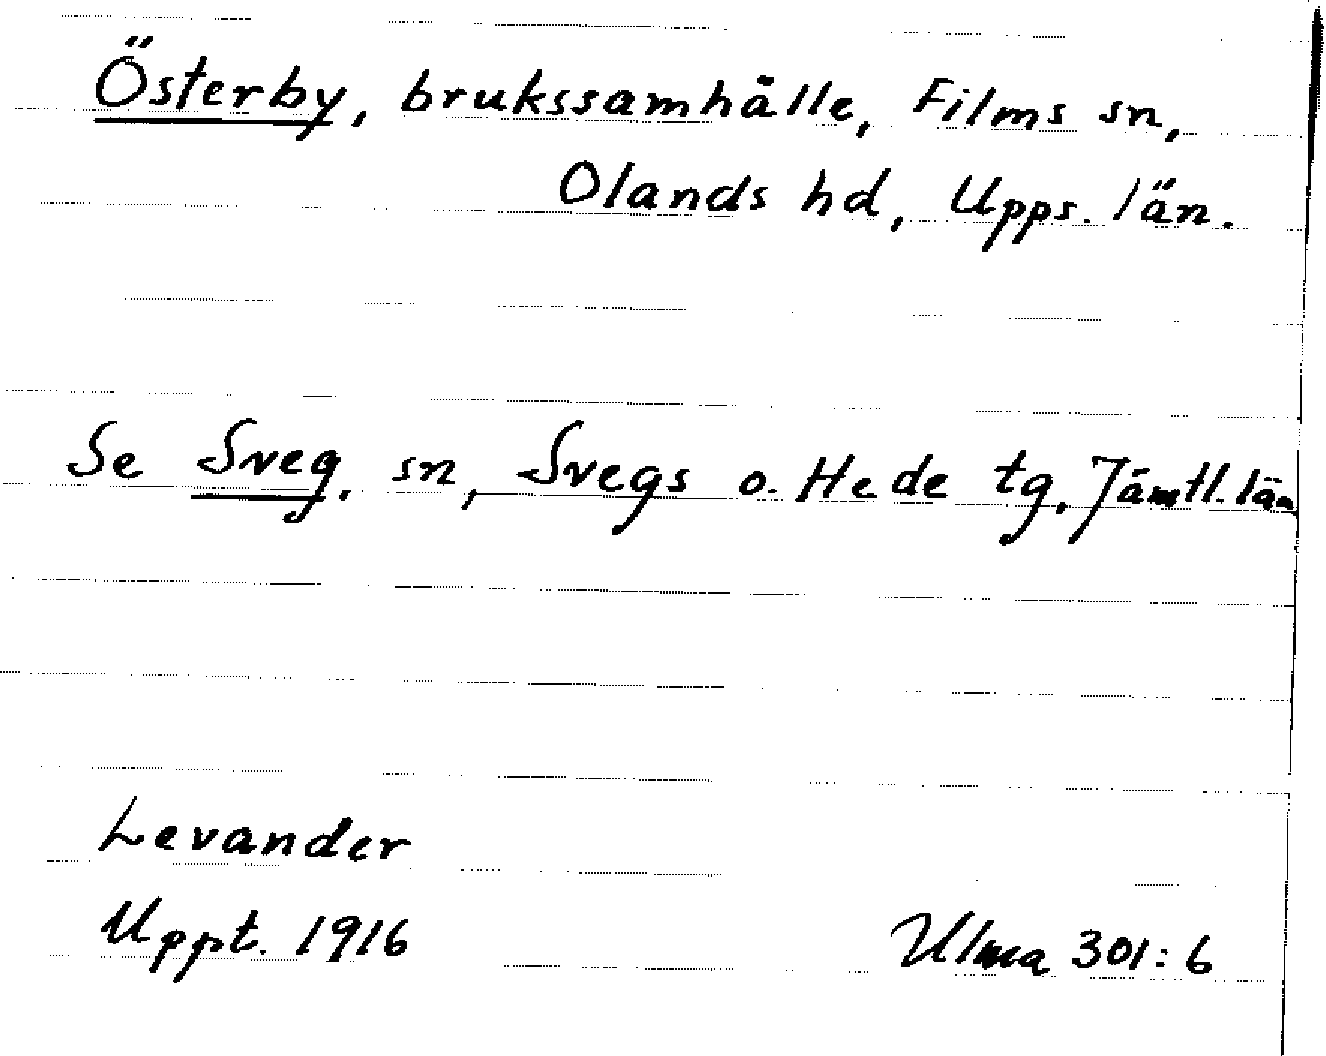 Österby, brukssamhälle, Films sn,
Olands hd, Upps. län.
Se Sveg, sn, Svegs o. Hede tg, Jämtl. län
Levander
Uppt. 1916
Ulma 301:6